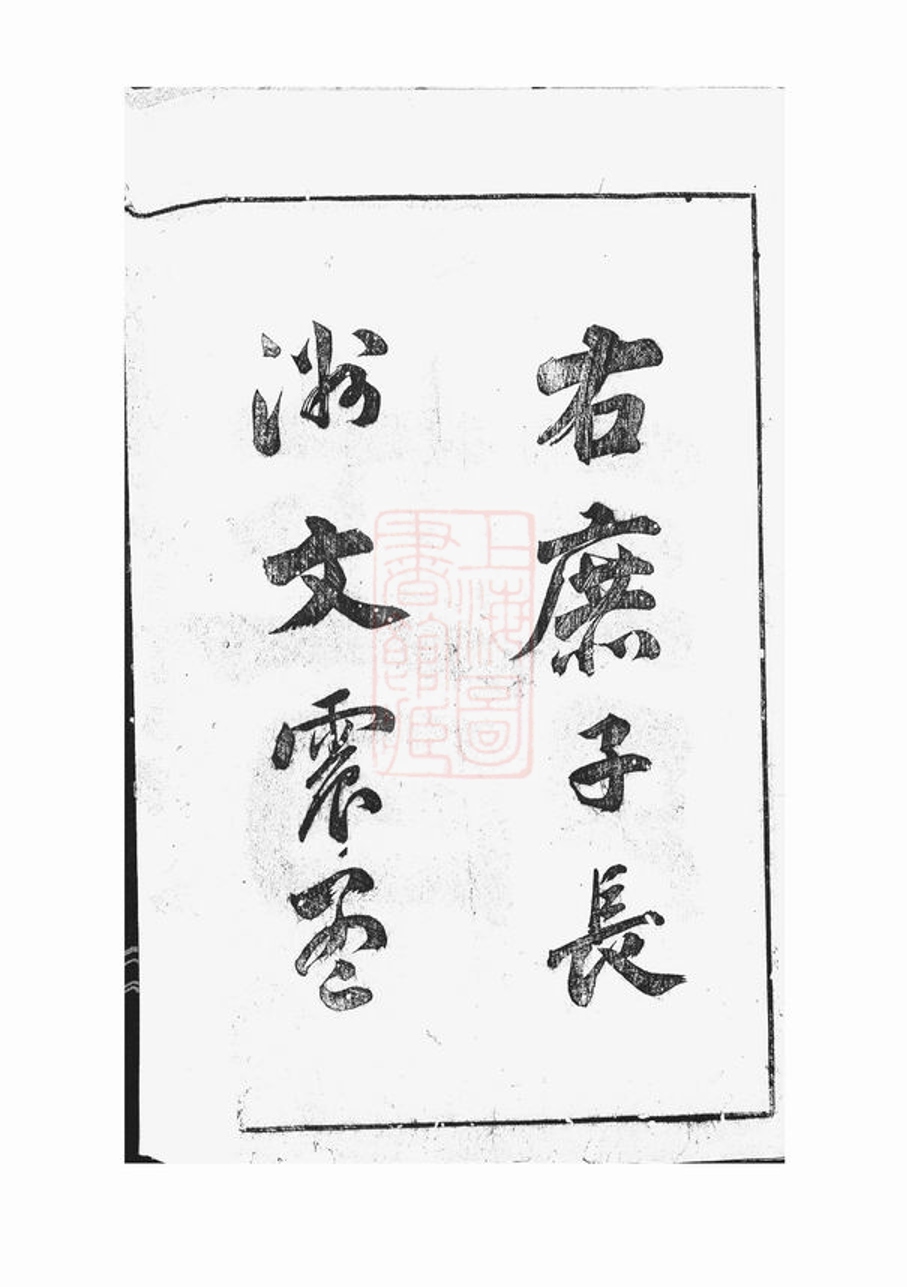 右庶子長
洲文震孟
上海圖
書館藏